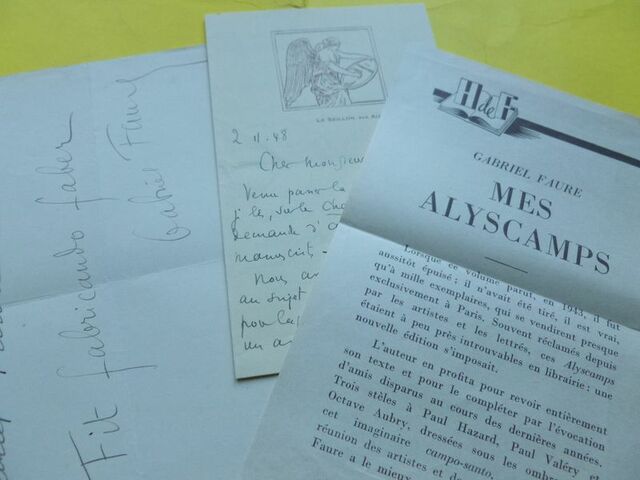 Fit fabricando faber
Gabriel Faure
2 11.48
Cher Monsieur
Venu passer la
j'ai, sur le
demande d'
manuscrit -
Nous
au sujet
pour la
un
H de F
GABRIEL FAURE
MES
ALYSCAMPS
Lorsque ce volume parut, en 1943, il fut
aussitôt épuisé : il n'avait été tiré, il est vrai,
qu'à mille exemplaires, qui se vendirent presque
exclusivement à Paris. Souvent réclamés depuis
par les artistes et les lettrés, ces Alyscamps
étaient à peu près introuvables en librairie : une
nouvelle édition s'imposait.
L'auteur en profita pour revoir entièrement
son texte et pour le compléter par l'évocation
d'amis disparus au cours des dernières années.
Trois stèles à Paul Hazard, Paul Valéry et
Octave Aubry, dressées sous les ombr
cet imaginaire campo-santo,
réunion des artistes et de
Faure a le mieux